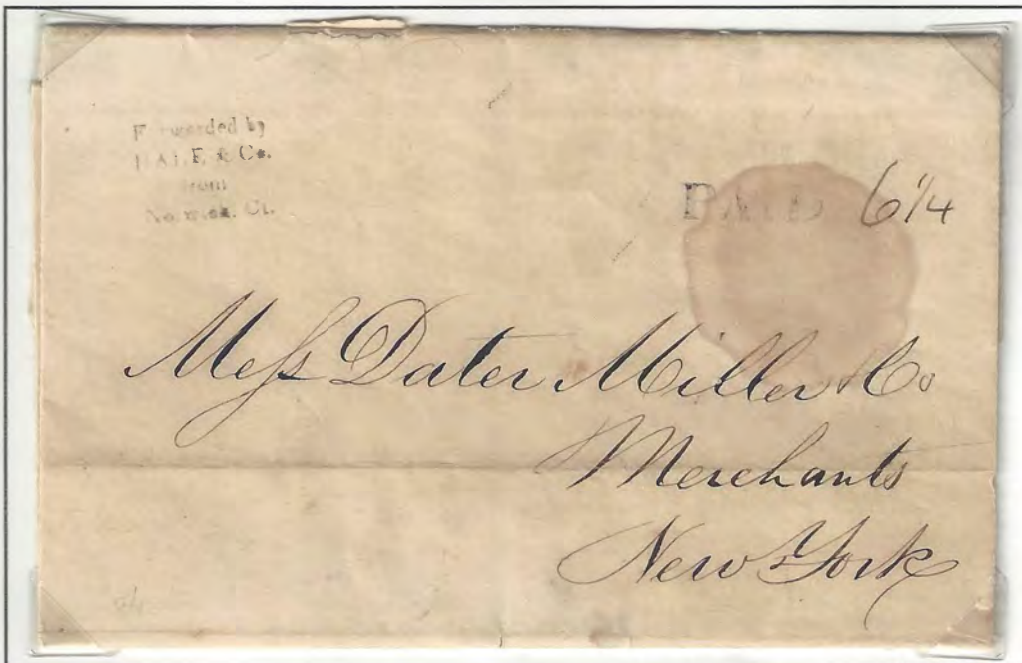 Forwarded by
HALE & Co.
from
Norwich, Ct.
PAID 6 1/4
Mess Dater Miller & Co
Merchants
New York